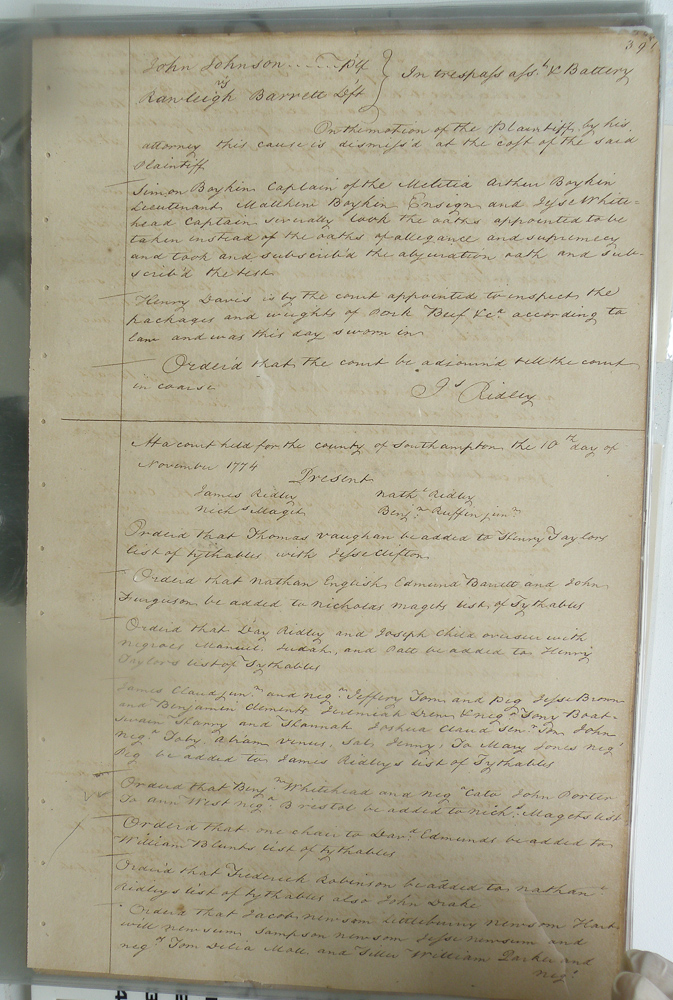 39
John Johnson Plf
vs
Ranleigh Barrett Dft
In trespass asst & Battery
On the motion of the Plaintiff by his
attorney this cause is dismiss'd at the cost of the said
Plaintiff
Simon Boykin Captain of the Melitia Arthur Boykin
Lieutenant Matthew Boykin Ensign and Jesse White=
head Captain severally took the oaths appointed to be
taken instead of the oaths of allegance and supremecy
and took and subscrib'd the abjuration oath and sub=
scrib'd the test
Henry Davis is by the court appointed to inspect the
packages and weights of Pork Beef &ca according to
law and was this day sworn in
Order'd that the court be adjournd till the court
in coarse
Js Ridley
At a court held for the county of Southampton the 10th day of
November 1774
Present
James Ridley
Nathl Ridley
Nichs Maget
Benjn Ruffin junr
Orderd that Thomas Vaughan be added to Henry Taylors
list of tythables with Jesse Clifton
Orderd that Nathan English Edmund Barrett and John
Furguson be added to Nicholas Magets list of Tythables
Orderd that Day Ridley and Joseph Child overseer with
negroes Manuel Judah and Patt be added to Henry
Taylors list of Tythables
James Claud junr and negs Jeffery Tom and Peg Jesse Brown
and Benjamin Clements Jeremiah Drew & negs Tony Boat=
swain Sharry and Hannah Joshua Claud Senr Tom John
negs Toby Abram Venus Sal Jenny To Mary Jones negs
Peg be added to James Ridley's list of Tythables
Orderd that Benjn Whitehead and negs Cato John Porter
To Ann West negs Bristol be added to Nichs Magets list
Orderd that one chair to Davd Edmunds be added to
William Blunts list of tythables
Orderd that Frederick Robinson be added to Nathanl
Ridleys list of tythables also John Drake
Orderd that Jacob Newsom Littleberry Newsom Hart
will newsum Sampson newsom Jesse newsum and
negs Tom Delia Moll and William Parker and
negs